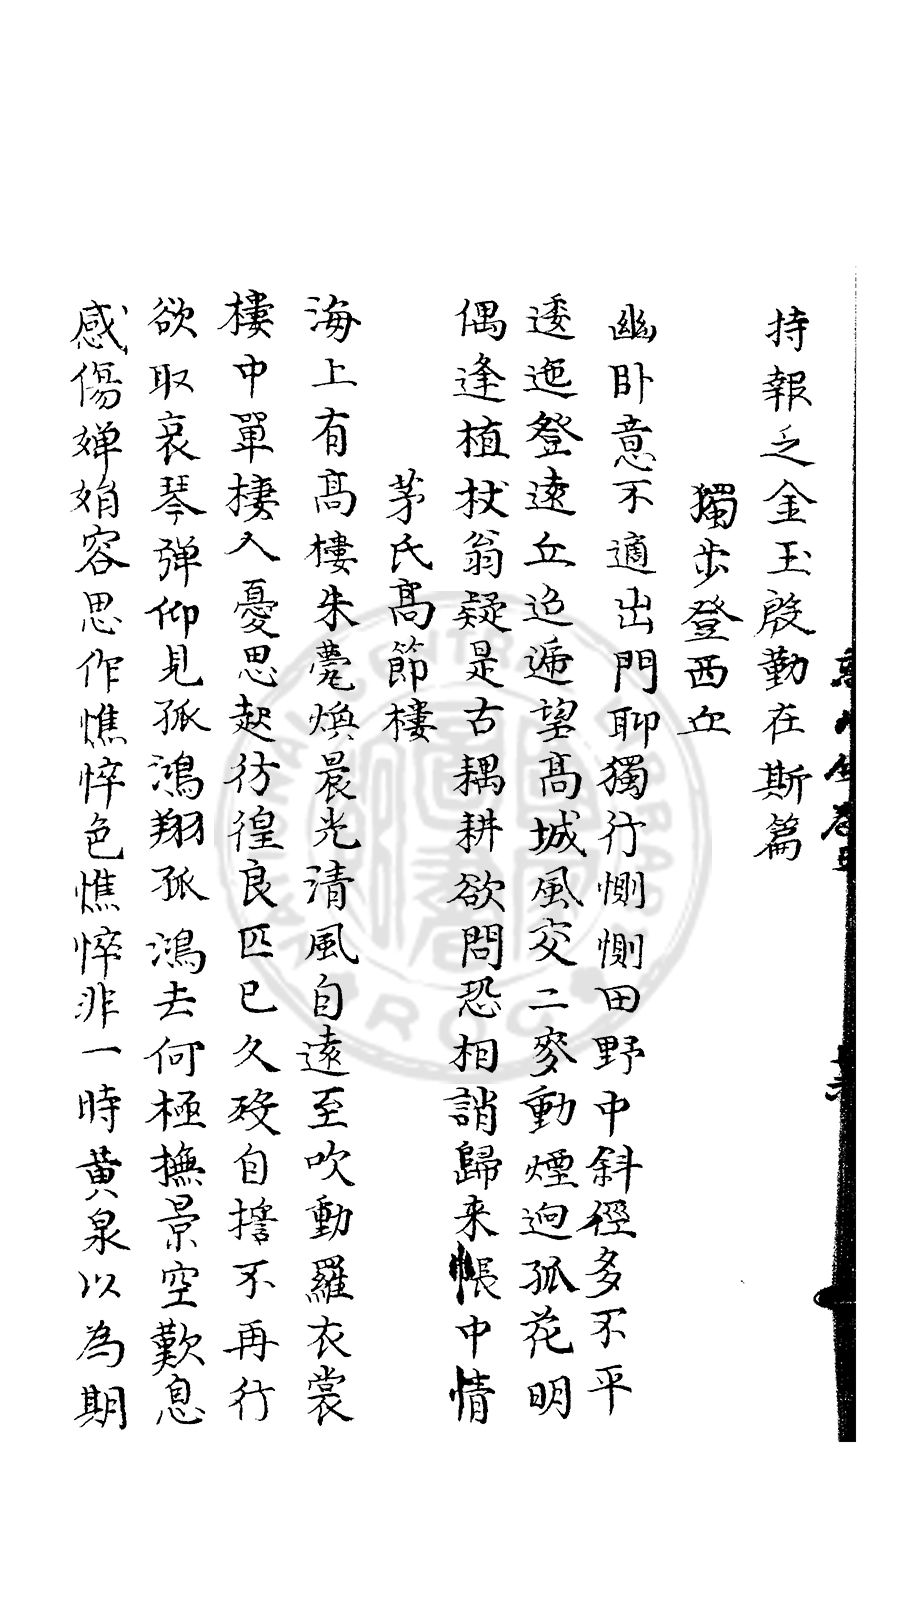 持報乏金玉慇勤在斯篇
獨步登西丘
幽卧意不適出門聊獨行惻惻田野中斜徑多不平
逶迤登遠丘迢遞望髙城風交二麥動煙迥孤花明
偶逢植杖翁疑是古耦耕欲問恐相誚歸来悵中情
茅氏髙節樓
海上有髙樓朱甍煥晨光清風自遠至吹動羅衣裳
樓中單棲人憂思起彷徨良匹已久歿自誓不再行
欲取哀琴弹仰見孤鴻翔孤鴻去何極撫景空歎息
感傷嬋娟容思作憔悴色憔悴非一時黄泉以為期